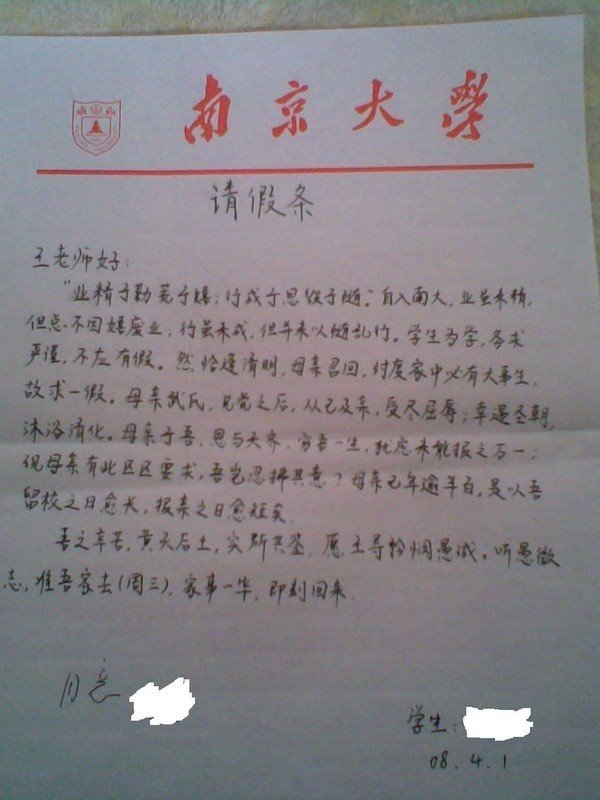 南京大學
请假条
王老师好：
“业精于勤荒于嬉；行成于思毁于随。”自入南大，业虽未精，
但总不因嬉废业；行虽未成，但并未以随乱行。学生为学，务求
严谨，不应有假。然恰逢清明，母亲召回，忖度家中必有大事生，
故求一假。母亲武氏，兄党之后，从己及亲，受尽屈辱；幸遇圣朝，
沐浴清化。母亲于吾，恩与天齐，穷吾一生，犹恐未能报之万一；
但母亲有此区区要求，吾岂忍拂其意？母亲已年逾半百，是以吾
留校之日愈长，报亲之日愈短矣。
吾之辛苦，黄天后土，实所共鉴，愿王导矜悯愚诚，听愚微
志，准吾家去(周三)，家事一毕，即刻回来。
同意
学生：
08.4.1